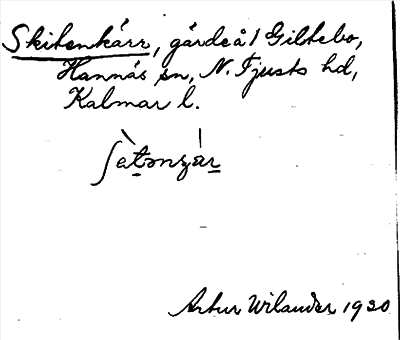 Skitenkärr, gärde å 1 Giltebo,
Hannäs sn, N. Tjusts hd,
Kalmar l.
Artur Wilander 1920